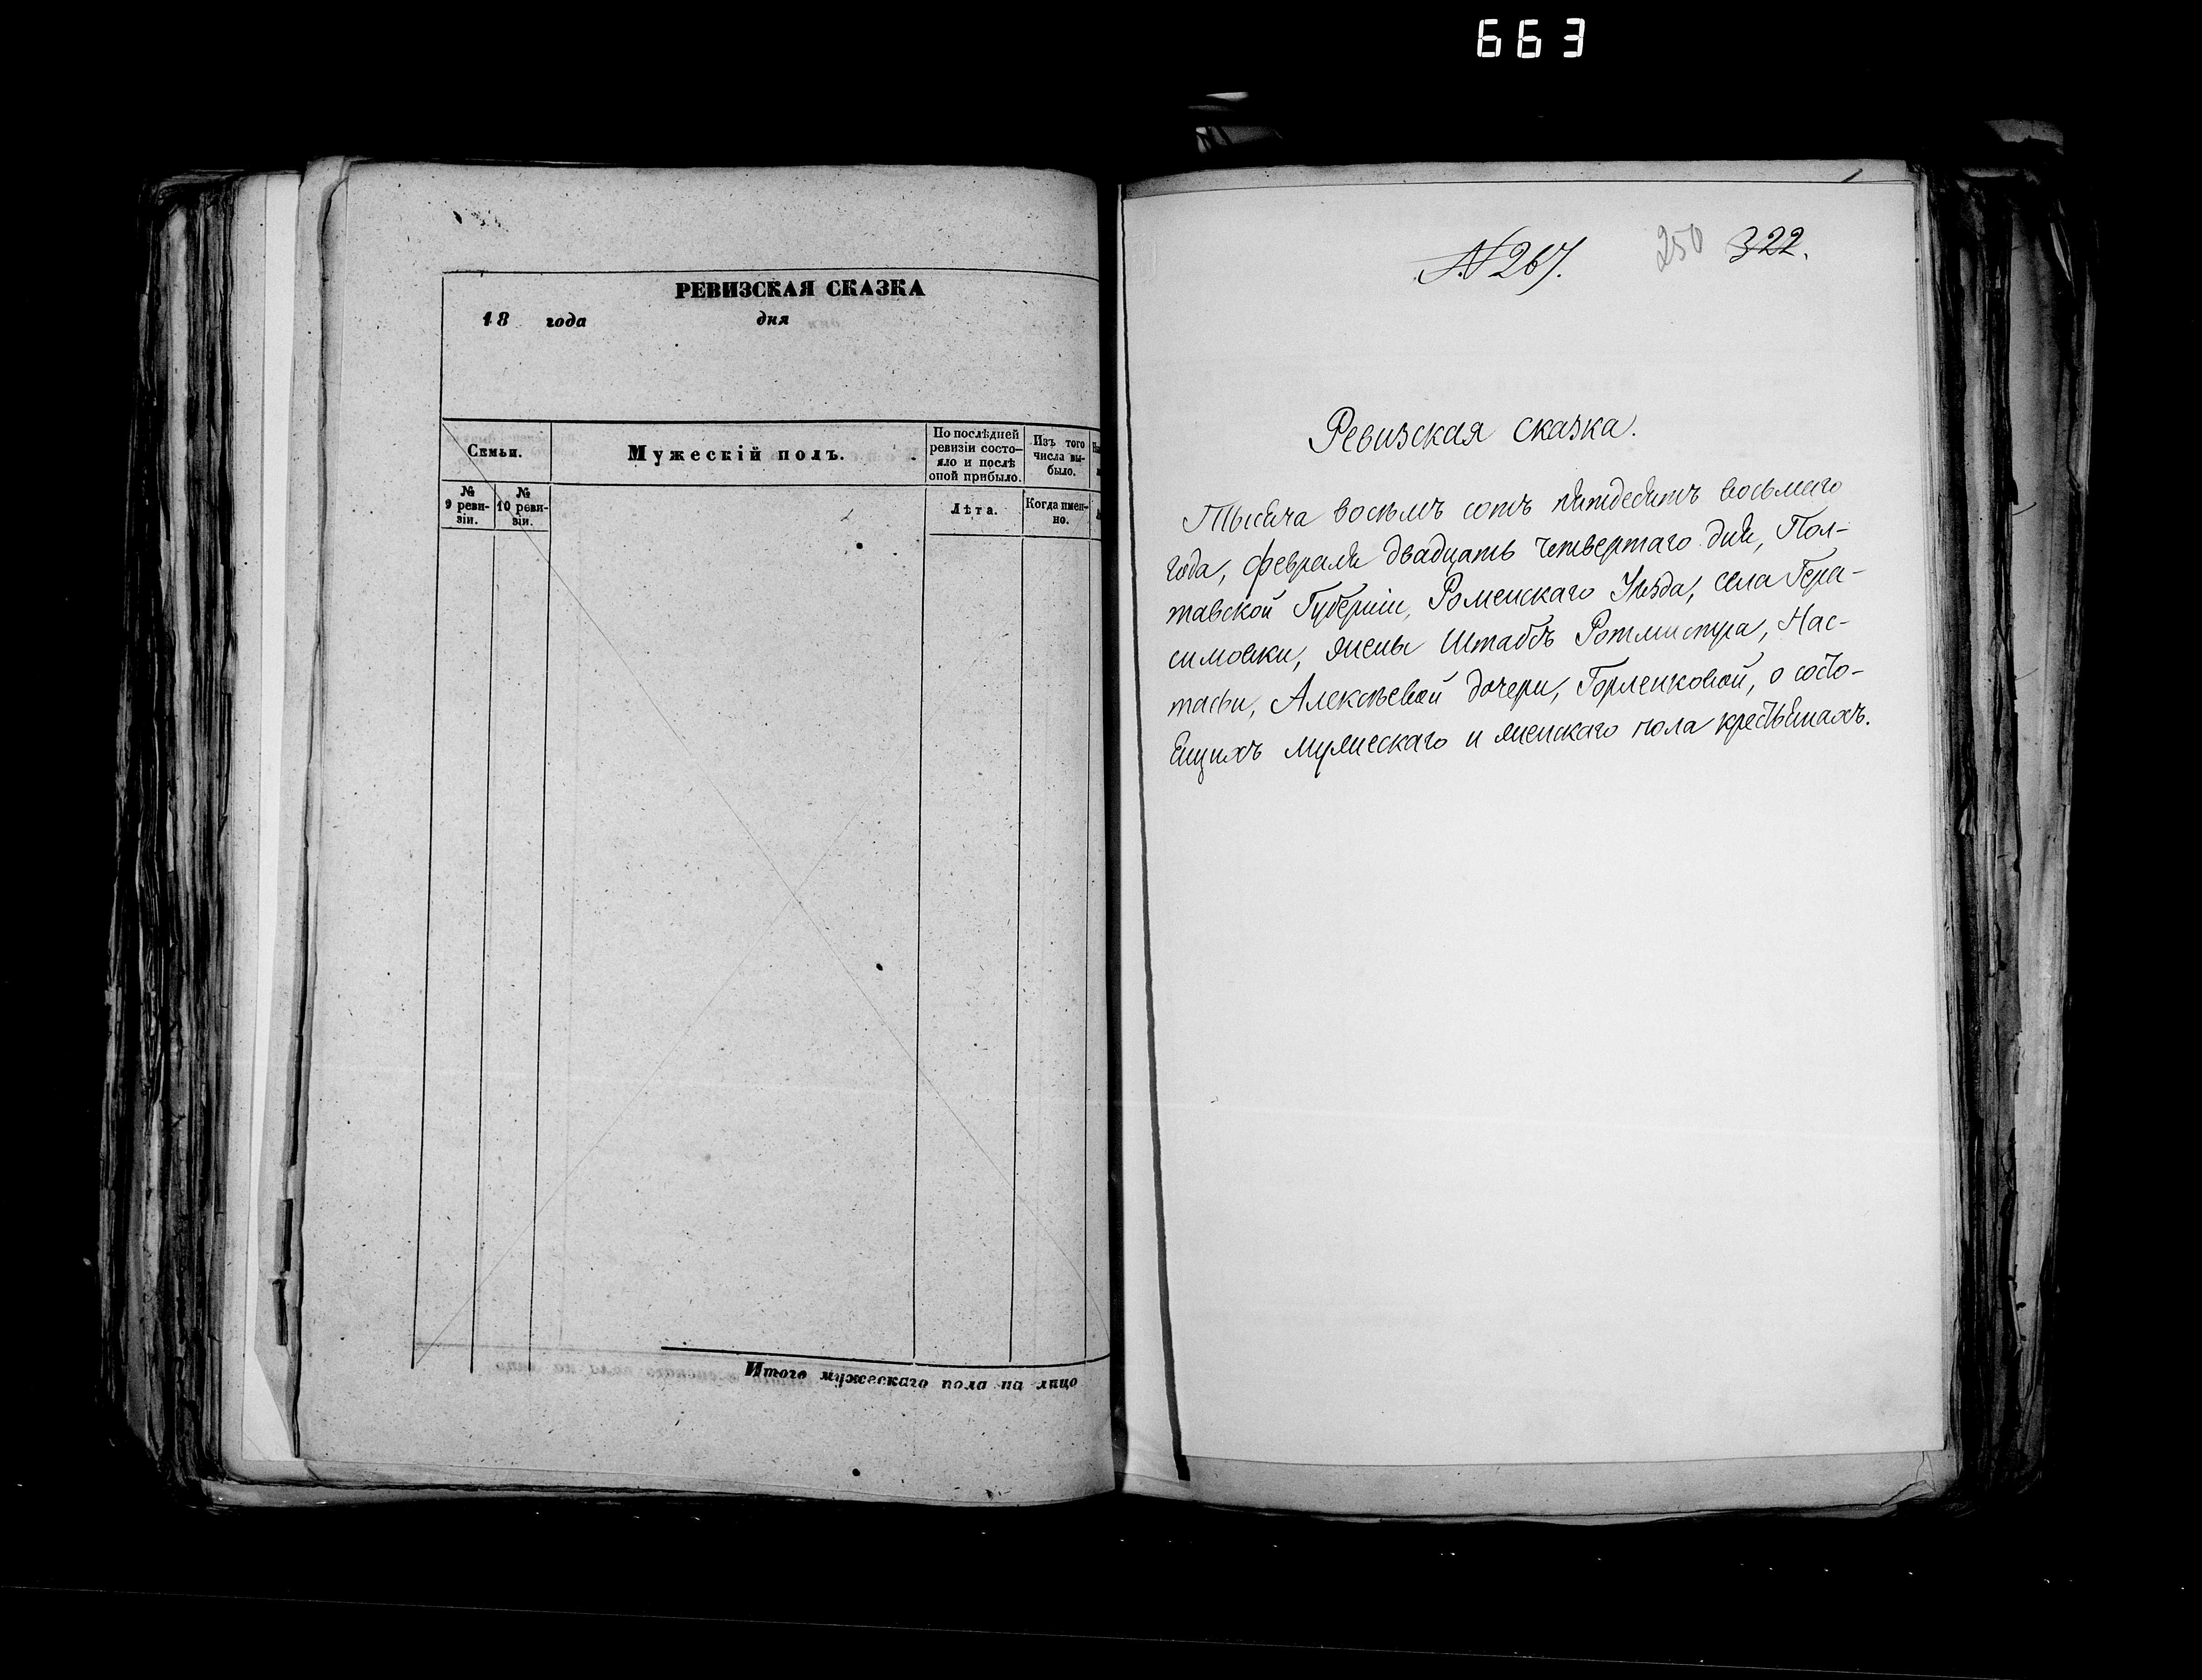 663
РЕВИЗСКАЯ СКАЗКА
18 года дня
Семьи.
Мужескій полъ.
По послѣдней
ревизіи состо-
яло и послѣ
оной прибыло.
Изъ того
числа вы-
было.
№
9 реви-
зіи.
№
10 реви-
зіи.
Лѣта.
Когда имен-
но.
Итого мужескаго пола на лицо
№ 267.
250
322.
Ревизская сказка.
Тысяча восемь сотъ пятдесятъ восьмаго
года, февраля двадцать четвертаго дня, Пол-
тавской Губерніи, Роменскаго Уѣзда, села Гера-
симовки, жены Штабъ Ротмистра, Нас-
тасьи, Алексѣевой дочери, Горленковой, о состо-
ящихъ мужескаго и женскаго пола крестьянахъ.